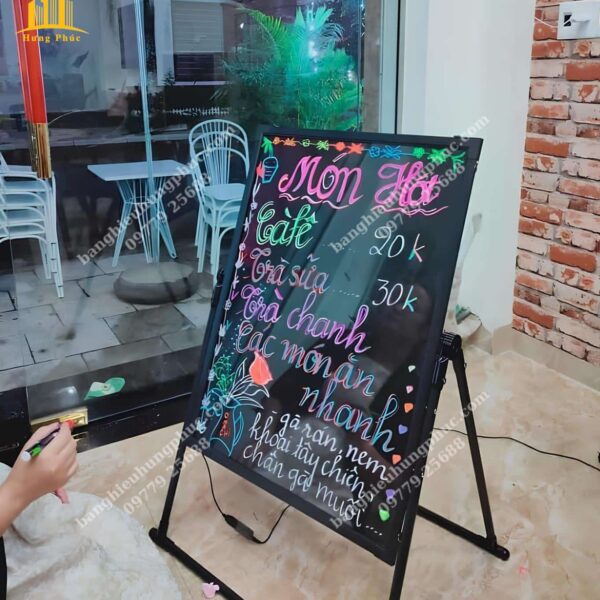 Hưng Phúc
Món Hot
Càfê ... 20k
Trà sữa ..... 30k
Trà chanh
Các món ăn
nhanh
gà rán, nem
khoai tây chiên
chân gà muối...
banghieuhungphuc.com
09779 25688
banghieuhungphuc.com
09779 25688
banghieuhungphuc.com
09779 25688
banghieuhungphuc.com
09779 25688